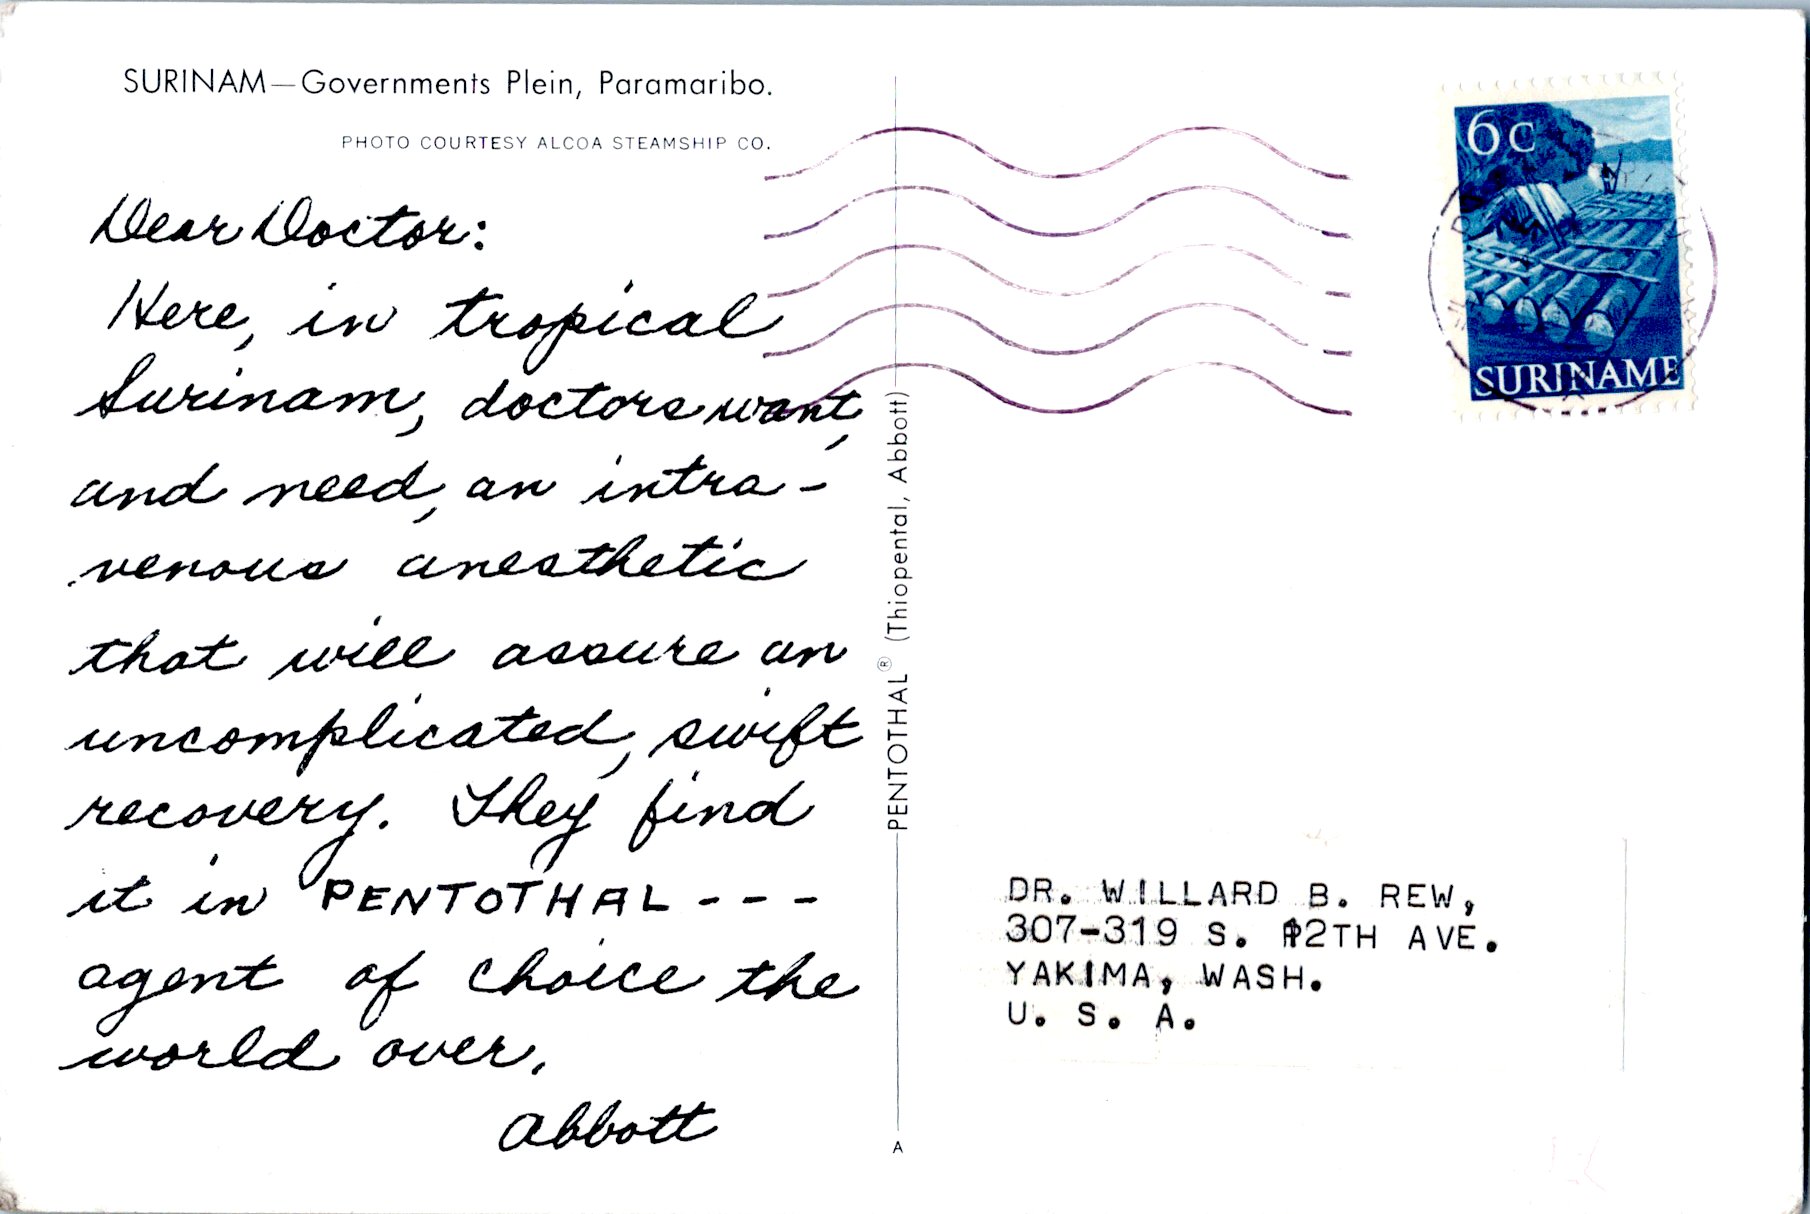 SURINAM—Governments Plein, Paramaribo.
PHOTO COURTESY ALCOA STEAMSHIP CO.
Dear Doctor:
Here, in tropical
Surinam, doctors want,
and need, an intra-
venous anesthetic
that will assure an
uncomplicated, swift
recovery. They find
it in PENTOTHAL---
agent of choice the
world over.
Abbott
PENTOTHAL® (Thiopental, Abbott)
A
6c
SURINAME
DR. WILLARD B. REW,
307-319 S. 12TH AVE.
YAKIMA, WASH.
U. S. A.